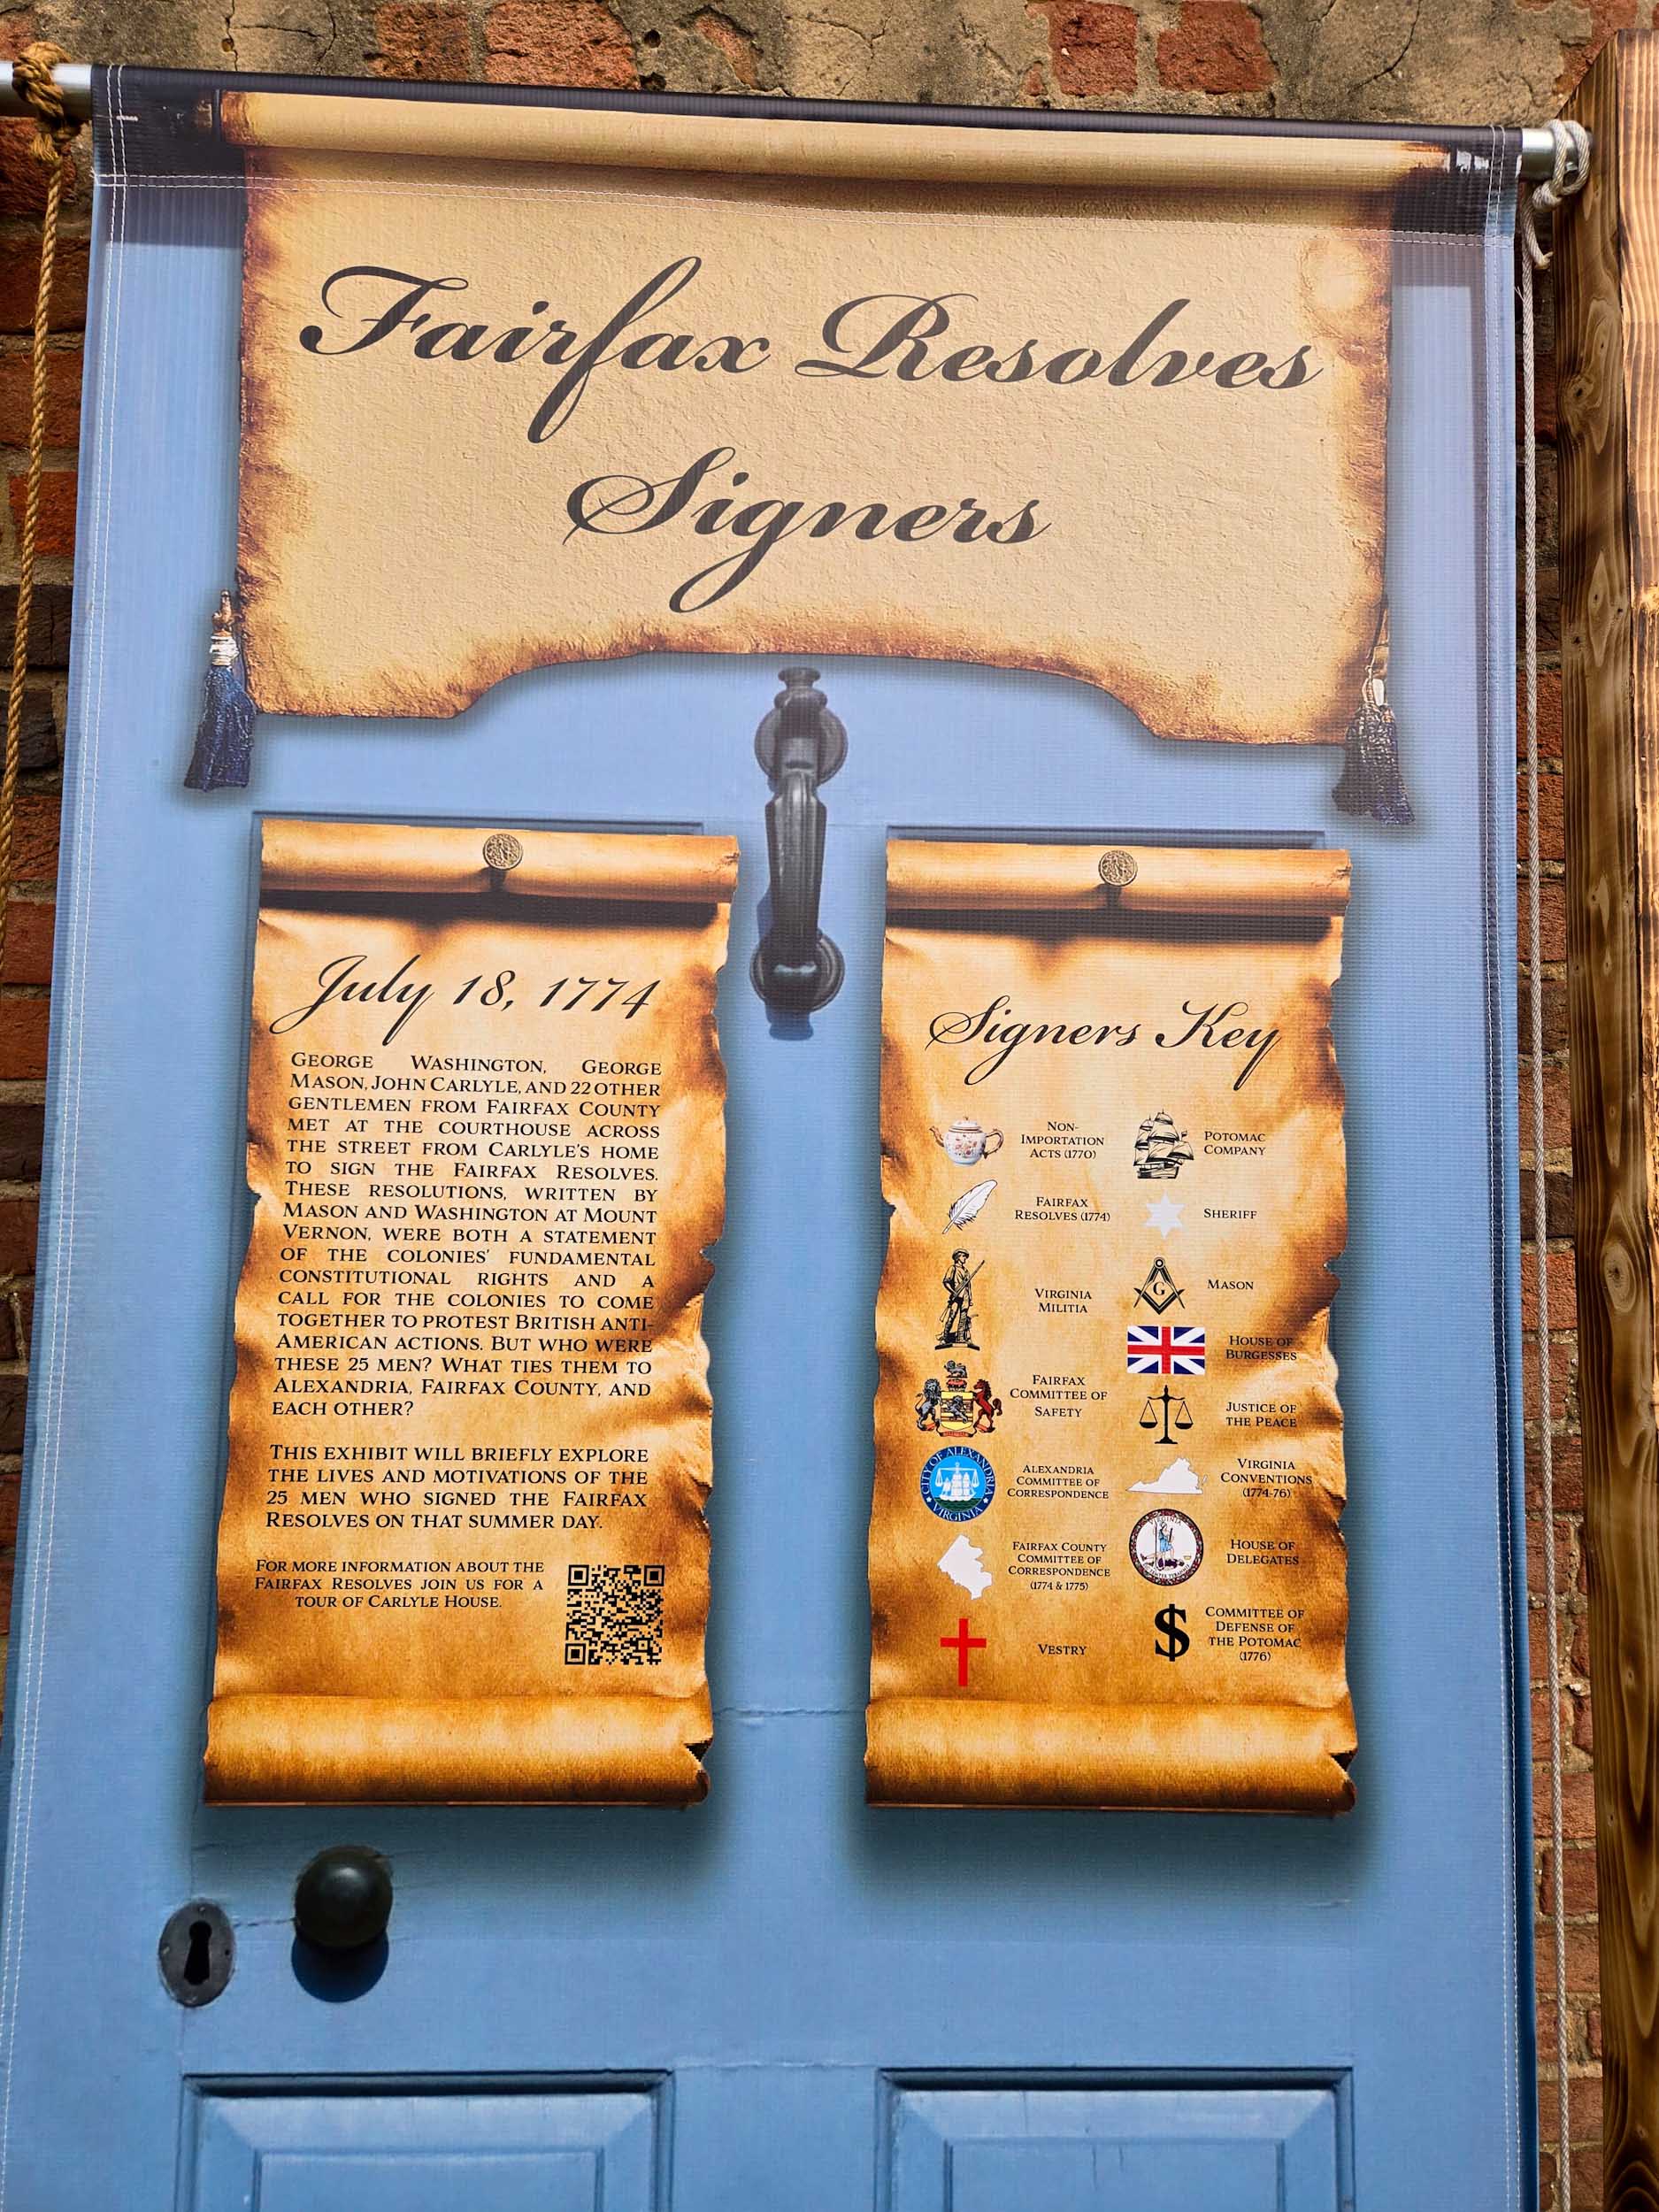 Fairfax Resolves
Signers
July 18, 1774
GEORGE WASHINGTON, GEORGE
MASON, JOHN CARLYLE, AND 22 OTHER
GENTLEMEN FROM FAIRFAX COUNTY
MET AT THE COURTHOUSE ACROSS
THE STREET FROM CARLYLE'S HOME
TO SIGN THE FAIRFAX RESOLVES.
THESE RESOLUTIONS, WRITTEN BY
MASON AND WASHINGTON AT MOUNT
VERNON, WERE BOTH A STATEMENT
OF THE COLONIES' FUNDAMENTAL
CONSTITUTIONAL RIGHTS AND A
CALL FOR THE COLONIES TO COME
TOGETHER TO PROTEST BRITISH ANTI-
AMERICAN ACTIONS. BUT WHO WERE
THESE 25 MEN? WHAT TIES THEM TO
ALEXANDRIA, FAIRFAX COUNTY, AND
EACH OTHER?
THIS EXHIBIT WILL BRIEFLY EXPLORE
THE LIVES AND MOTIVATIONS OF THE
25 MEN WHO SIGNED THE FAIRFAX
RESOLVES ON THAT SUMMER DAY.
FOR MORE INFORMATION ABOUT THE
FAIRFAX RESOLVES JOIN US FOR A
TOUR OF CARLYLE HOUSE.
Signers Key
NON-
IMPORTATION
ACTS (1770)
FAIRFAX
RESOLVES (1774)
VIRGINIA
MILITIA
FAIRFAX
COMMITTEE OF
SAFETY
CITY OF ALEXANDRIA
VIRGINIA
ALEXANDRIA
COMMITTEE OF
CORRESPONDENCE
FAIRFAX COUNTY
COMMITTEE OF
CORRESPONDENCE
(1774 & 1775)
VESTRY
POTOMAC
COMPANY
SHERIFF
G
MASON
HOUSE OF
BURGESSES
JUSTICE OF
THE PEACE
VIRGINIA
CONVENTIONS
(1774-76)
VIRGINIA
HOUSE OF
DELEGATES
$
COMMITTEE OF
DEFENSE OF
THE POTOMAC
(1776)